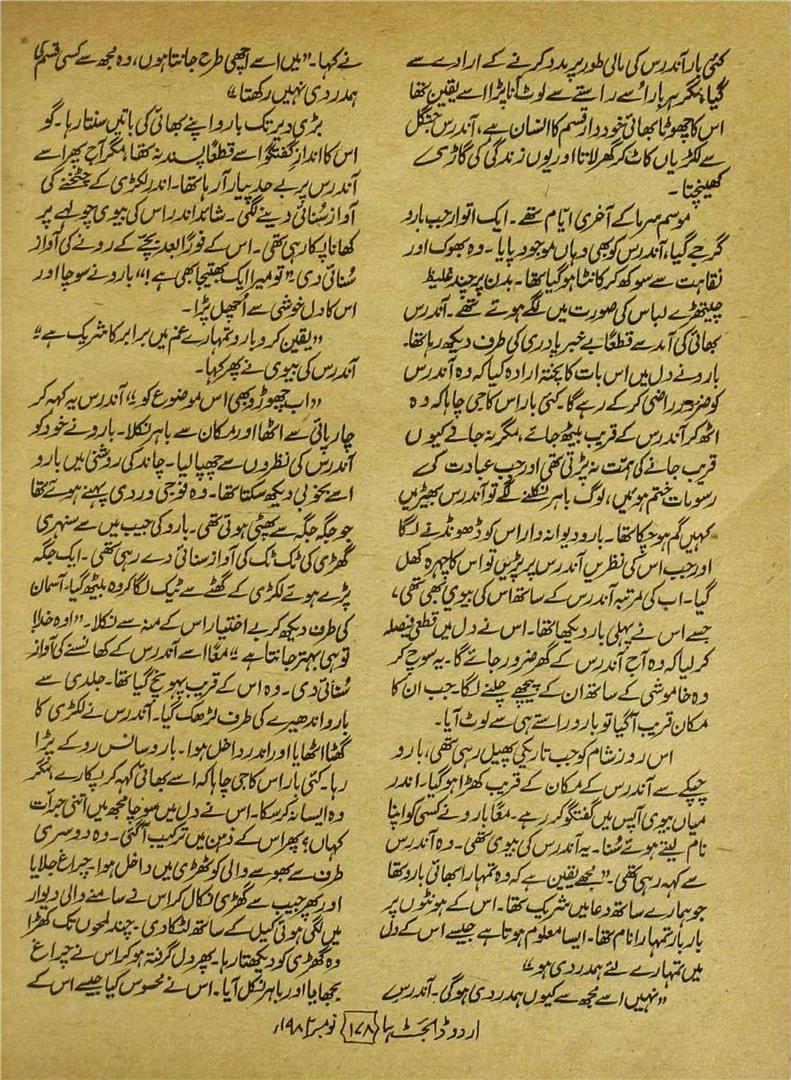 کئی بار آندرس کی مالی طور پر مدد کرنے کے ارادے سے
گیا، مگر ہر بار اُسے راستے سے لوٹ آنا پڑا اسے یقین تھا
اس کا چھوٹا بھائی خوددار قسم کا انسان ہے، آندرس جنگل
سے لکڑیاں کاٹ کر گھر لاتا اور یوں زندگی کی گاڑی
کھینچتا۔
موسم سرما کے آخری ایّام تھے۔ ایک اتوار جب بارو
گرجے گیا، آندرس کو بھی وہاں موجود پایا۔ وہ بھوک اور
نقاہت سے سوکھ کر کانٹا ہو گیا تھا۔ بدن پر چند غلیظ
چیتھڑے لباس کی صورت میں لگے ہوئے تھے۔ آندرس
بھائی کی آمد سے قطعاً بے خبر پادری کی طرف دیکھ رہا تھا۔
بارو نے دل میں اس بات کا پختہ ارادہ کیا کہ وہ آندرس
کو ضرور راضی کر کے رہے گا۔ کئی بار اس کا جی چاہا کہ وہ
اٹھ کر آندرس کے قریب بیٹھ جائے، مگر نہ جانے کیوں
قریب جانے کی ہمّت نہ پڑتی تھی اور جب عبادت کے
رسومات ختم ہوئیں، لوگ باہر نکلنے لگے تو آندرس بھیڑ میں
کہیں گم ہو چکا تھا۔ بارو دیوانہ وار اس کو ڈھونڈنے لگا
اور جب اس کی نظریں آندرس پر پڑیں تو اس کا چہرہ کھل
گیا۔ اب کی مرتبہ آندرس کے ساتھ اس کی بیوی بھی تھی،
جسے اس نے پہلی بار دیکھا تھا۔ اس نے دل میں قطعی فیصلہ
کر لیا کہ وہ آج آندرس کے گھر ضرور جائے گا۔ یہ سوچ کر
وہ خاموشی کے ساتھ ان کے پیچھے چلنے لگا۔ جب ان کا
مکان قریب آ گیا تو بارو راستے ہی سے لوٹ آیا۔
اس روز شام کو جب تاریکی پھیل رہی تھی، بارو
چپکے سے آندرس کے مکان کے قریب کھڑا ہو گیا۔ اندر
میاں بیوی آپس میں گفتگو کر رہے۔ معاً بارو نے کسی کو اپنا
نام لیتے ہوئے سُنا۔ یہ آندرس کی بیوی تھی۔ وہ آندرس
سے کہہ رہی تھی۔ "مجھے یقین ہے کہ وہ تمہارا بھائی بارو تھا
جو ہمارے ساتھ دعا میں شریک تھا۔ اس کے ہونٹوں پر
بار بار تمہارا نام تھا۔ ایسا معلوم ہوتا ہے جیسے اس کے دل
میں تمہارے لئے ہمدردی ہو"
"نہیں اسے مجھ سے کیوں ہمدردی ہوگی۔ آندرس
نے کہا۔ "میں اسے اچھی طرح جانتا ہوں، وہ مجھ سے کسی قسم کی
ہمدردی نہیں رکھتا"
بڑی دیر تک بارو اپنے بھائی کی باتیں سنتا رہا۔ گو
اس کا اندازِ گفتگو اسے قطعاً پسند نہ تھا، مگر آج پھر اسے
آندرس پر بے حد پیار آ رہا تھا۔ اندر لکڑی کے چٹخنے کی
آواز سُنائی دینے لگی۔ شائد اندر اس کی بیوی چولہے پر
کھانا پکا رہی تھی۔ اس کے فوراً بعد بچّے کے رونے کی آواز
سُنائی دی "تو میرا ایک بھتیجا بھی ہے!" بارو نے سوچا اور
اس کا دل خوشی سے اُچھل پڑا۔
"یقین کرو بارو تمہارے غم میں برابر کا شریک ہے"
آندرس کی بیوی نے پھر کہا۔
"اب چھوڑو بھی اس موضوع کو" آندرس یہ کہہ کر
چارپائی سے اٹھا اور مکان سے باہر نکلا۔ بارو نے خود کو
آندرس کی نظروں سے چھپا لیا۔ چاند کی روشنی میں بارو
اسے بخوبی دیکھ سکتا تھا۔ وہ فوجی وردی پہنے ہوئے تھا
جو جگہ جگہ سے پھٹی ہوئی تھی۔ بارو کی جیب میں سے سنہری
گھڑی کی ٹک ٹک کی آواز سنائی دے رہی تھی۔ ایک جگہ
پڑے ہوئے لکڑی کے گٹھے سے ٹیک لگا کر وہ بیٹھ گیا۔ آسمان
کی طرف دیکھ کر بے اختیار اس کے منہ سے نکلا۔ "اوہ خدایا
تو ہی بہتر جانتا ہے" معاً اسے آندرس کے کھانسنے کی آواز
سُنائی دی۔ وہ اس کے قریب پہونچ گیا تھا۔ جلدی سے
بارو اندھیرے کی طرف لڑھک گیا۔ آندرس نے لکڑی کا
گٹھا اٹھایا اور اندر داخل ہوا۔ بارو سانس روکے پڑا
رہا۔ کئی بار اس کا جی چاہا کہ اسے بھائی کہہ کر پکارے، مگر
وہ ایسا نہ کر سکا۔ اس نے دل میں سوچا مجھ میں اتنی جرأت
کہاں؟ پھر اس کے ذہن میں ترکیب آ گئی۔ وہ دوسری
طرف سے بھوسے والی کوٹھڑی میں داخل ہوا۔ چراغ جلایا
اور پھر جیب سے گھڑی نکال کر اس نے سامنے والی دیوار
میں لگی ہوئی کیل کے ساتھ لٹکا دی۔ چند لمحوں تک کھڑا
وہ گھڑی کو دیکھتا رہا۔ پھر دل گرفتہ ہو کر اس نے چراغ
بجھایا اور باہر نکل آیا۔ اس نے محسوس کیا جیسے اس کے
اردو ڈائجسٹ ہما ۱۷۸ نومبر ۱۹۸۲ء